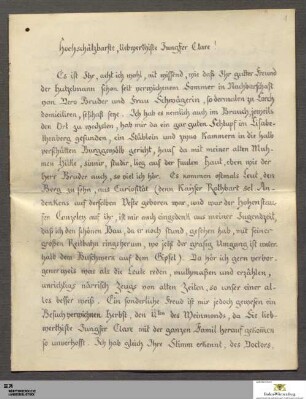 Hochschätzbarste, liebwerthiste Jungfer Clare!
Es ist Ihr, acht ich wohl, nit wissend, wie daß Ihr guter Freund
der Hutzelmann schon seit verwichenem Sommer in Nachbarschaft
von Dero Bruder und Frau Schwägerin, so dermalen zu Lorch
domiciliren, seßhaft seye. Ich hab es nemlich auch im Brauch, jeweils
den Ort zu wechslen, hab mir da ein gar guten Schlupf im Elisabe-
thenberg gefunden, ein Stüblein und Kammern in die halb
verschütten Burggewölb gericht, hause da mit meiner alten Muhm
meiner Hülle, sinnir, studir, lieg auf der faulen Haut, eben wie der
Herr Bruder auch, so viel ich hör. Es kommen oftmals Leut, den
Berg zu sehn, aus Curiosität (denn Kaiser Rothbart sel. An-
denkens auf derselben Veste geboren war, und war der Hohenstau-
fen auf ihr, ist mir noch eingedenk aus meiner Jugendzeit,
hab ich den schönen Bau, da er noch stund, gesehen hab, mit seiner
großen Reitbahn ringsherum, wo jetzt der grasig Umgang ist unter-
halb dem Gipfel). Da hör ich gern verbor-
generweis was als die Leute reden, muthmaßen und erzählen,
unrichtigs närrisch Zeugs von alten Zeiten, so unser einer al-
les besser weiß. Ein sonderliche Freud ist mir jedoch gewesen ein
Besuch verwichnen Herbst, den 12ten des Weinmonds, da Sie lieb-
werthiste Jungfer Clare mit der ganzen Famil herauf gekommen
so unverhofft. Ich hab gleich Ihre Stimm erkennt, des Doctors,